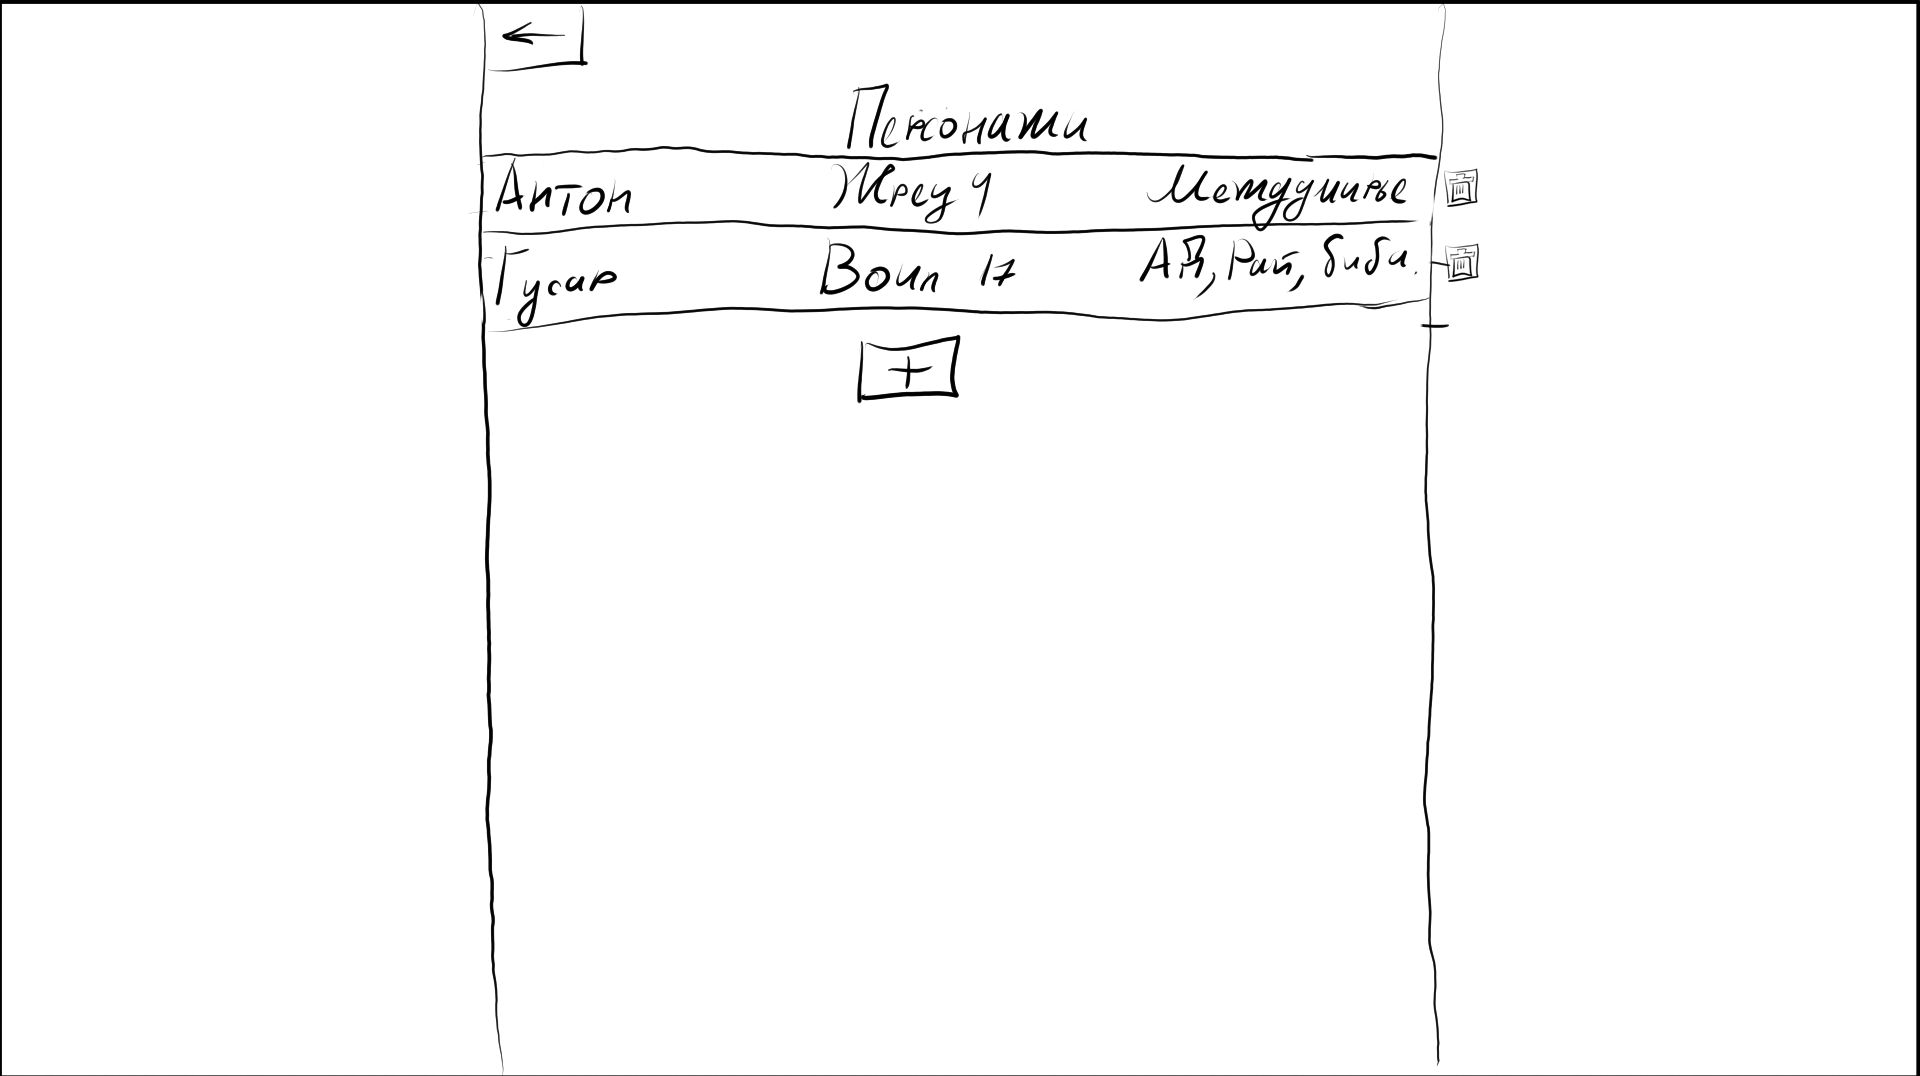 Персонажи
Антон Жрец 9 Междумирье
Гусар Воин 17 АД, Рай, биби.
+